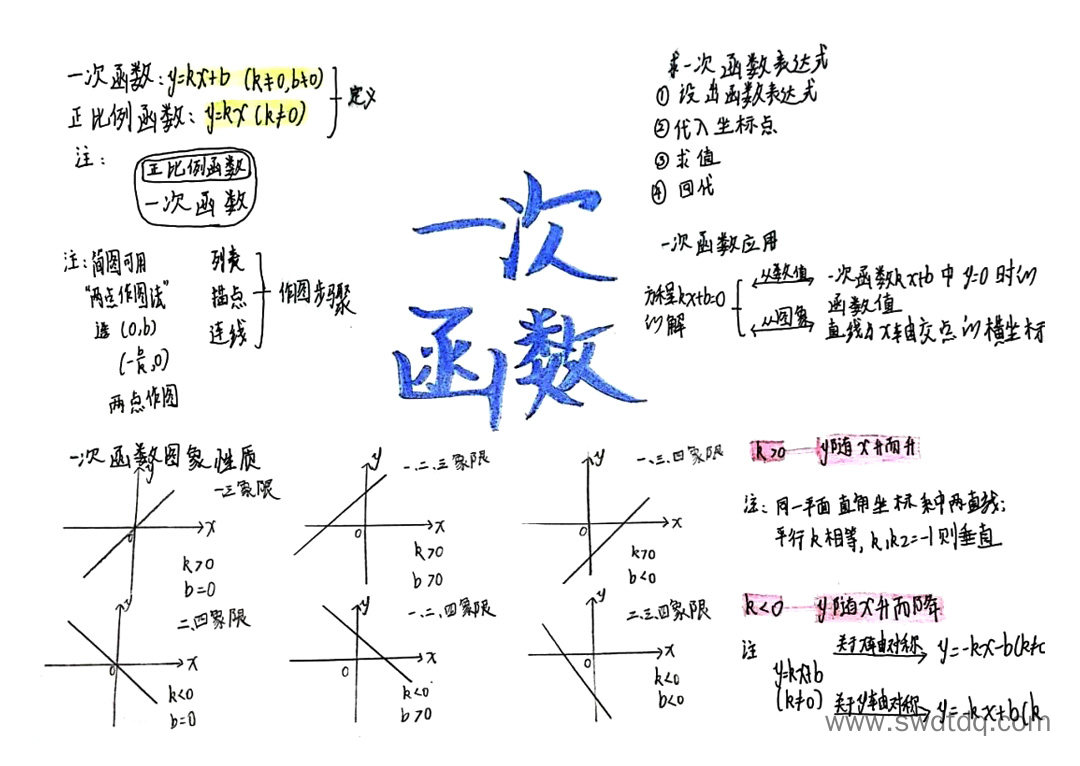 一次函数：y=kx+b (k≠0,b≠0)
正比例函数：y=kx (k≠0)
定义
注：
正比例函数
一次函数
注：简图可用
"两点作图法"
选 (0,b)
(-b/k,0)
两点作图
列表
描点
连线
作图步骤
一次
函数
求一次函数表达式
① 设出函数表达式
② 代入坐标点
③ 求值
④ 回代
一次函数应用
方程kx+b=0
的解
从数值
一次函数kx+b中 y=0时的
函数值
从图象
直线与x轴交点的横坐标
一次函数图象性质
y
一三象限
x
0
k>0
b=0
y
一.二.三象限
x
0
k>0
b>0
y
一.三.四象限
x
0
k>0
b<0
k>0
y随x升而升
注：同一平面直角坐标系中两直线；
平行k相等，k₁k₂=-1则垂直
y
二.四象限
x
0
k<0
b=0
y
一.二.四象限
x
0
k<0
b>0
y
二.三.四象限
x
0
k<0
b<0
k<0
y随x升而降
注
y=kx+b
(k≠0)
关于x轴对称
y=-kx-b(k≠
关于y轴对称
y=-kx+b(k
www.swdtdq.com